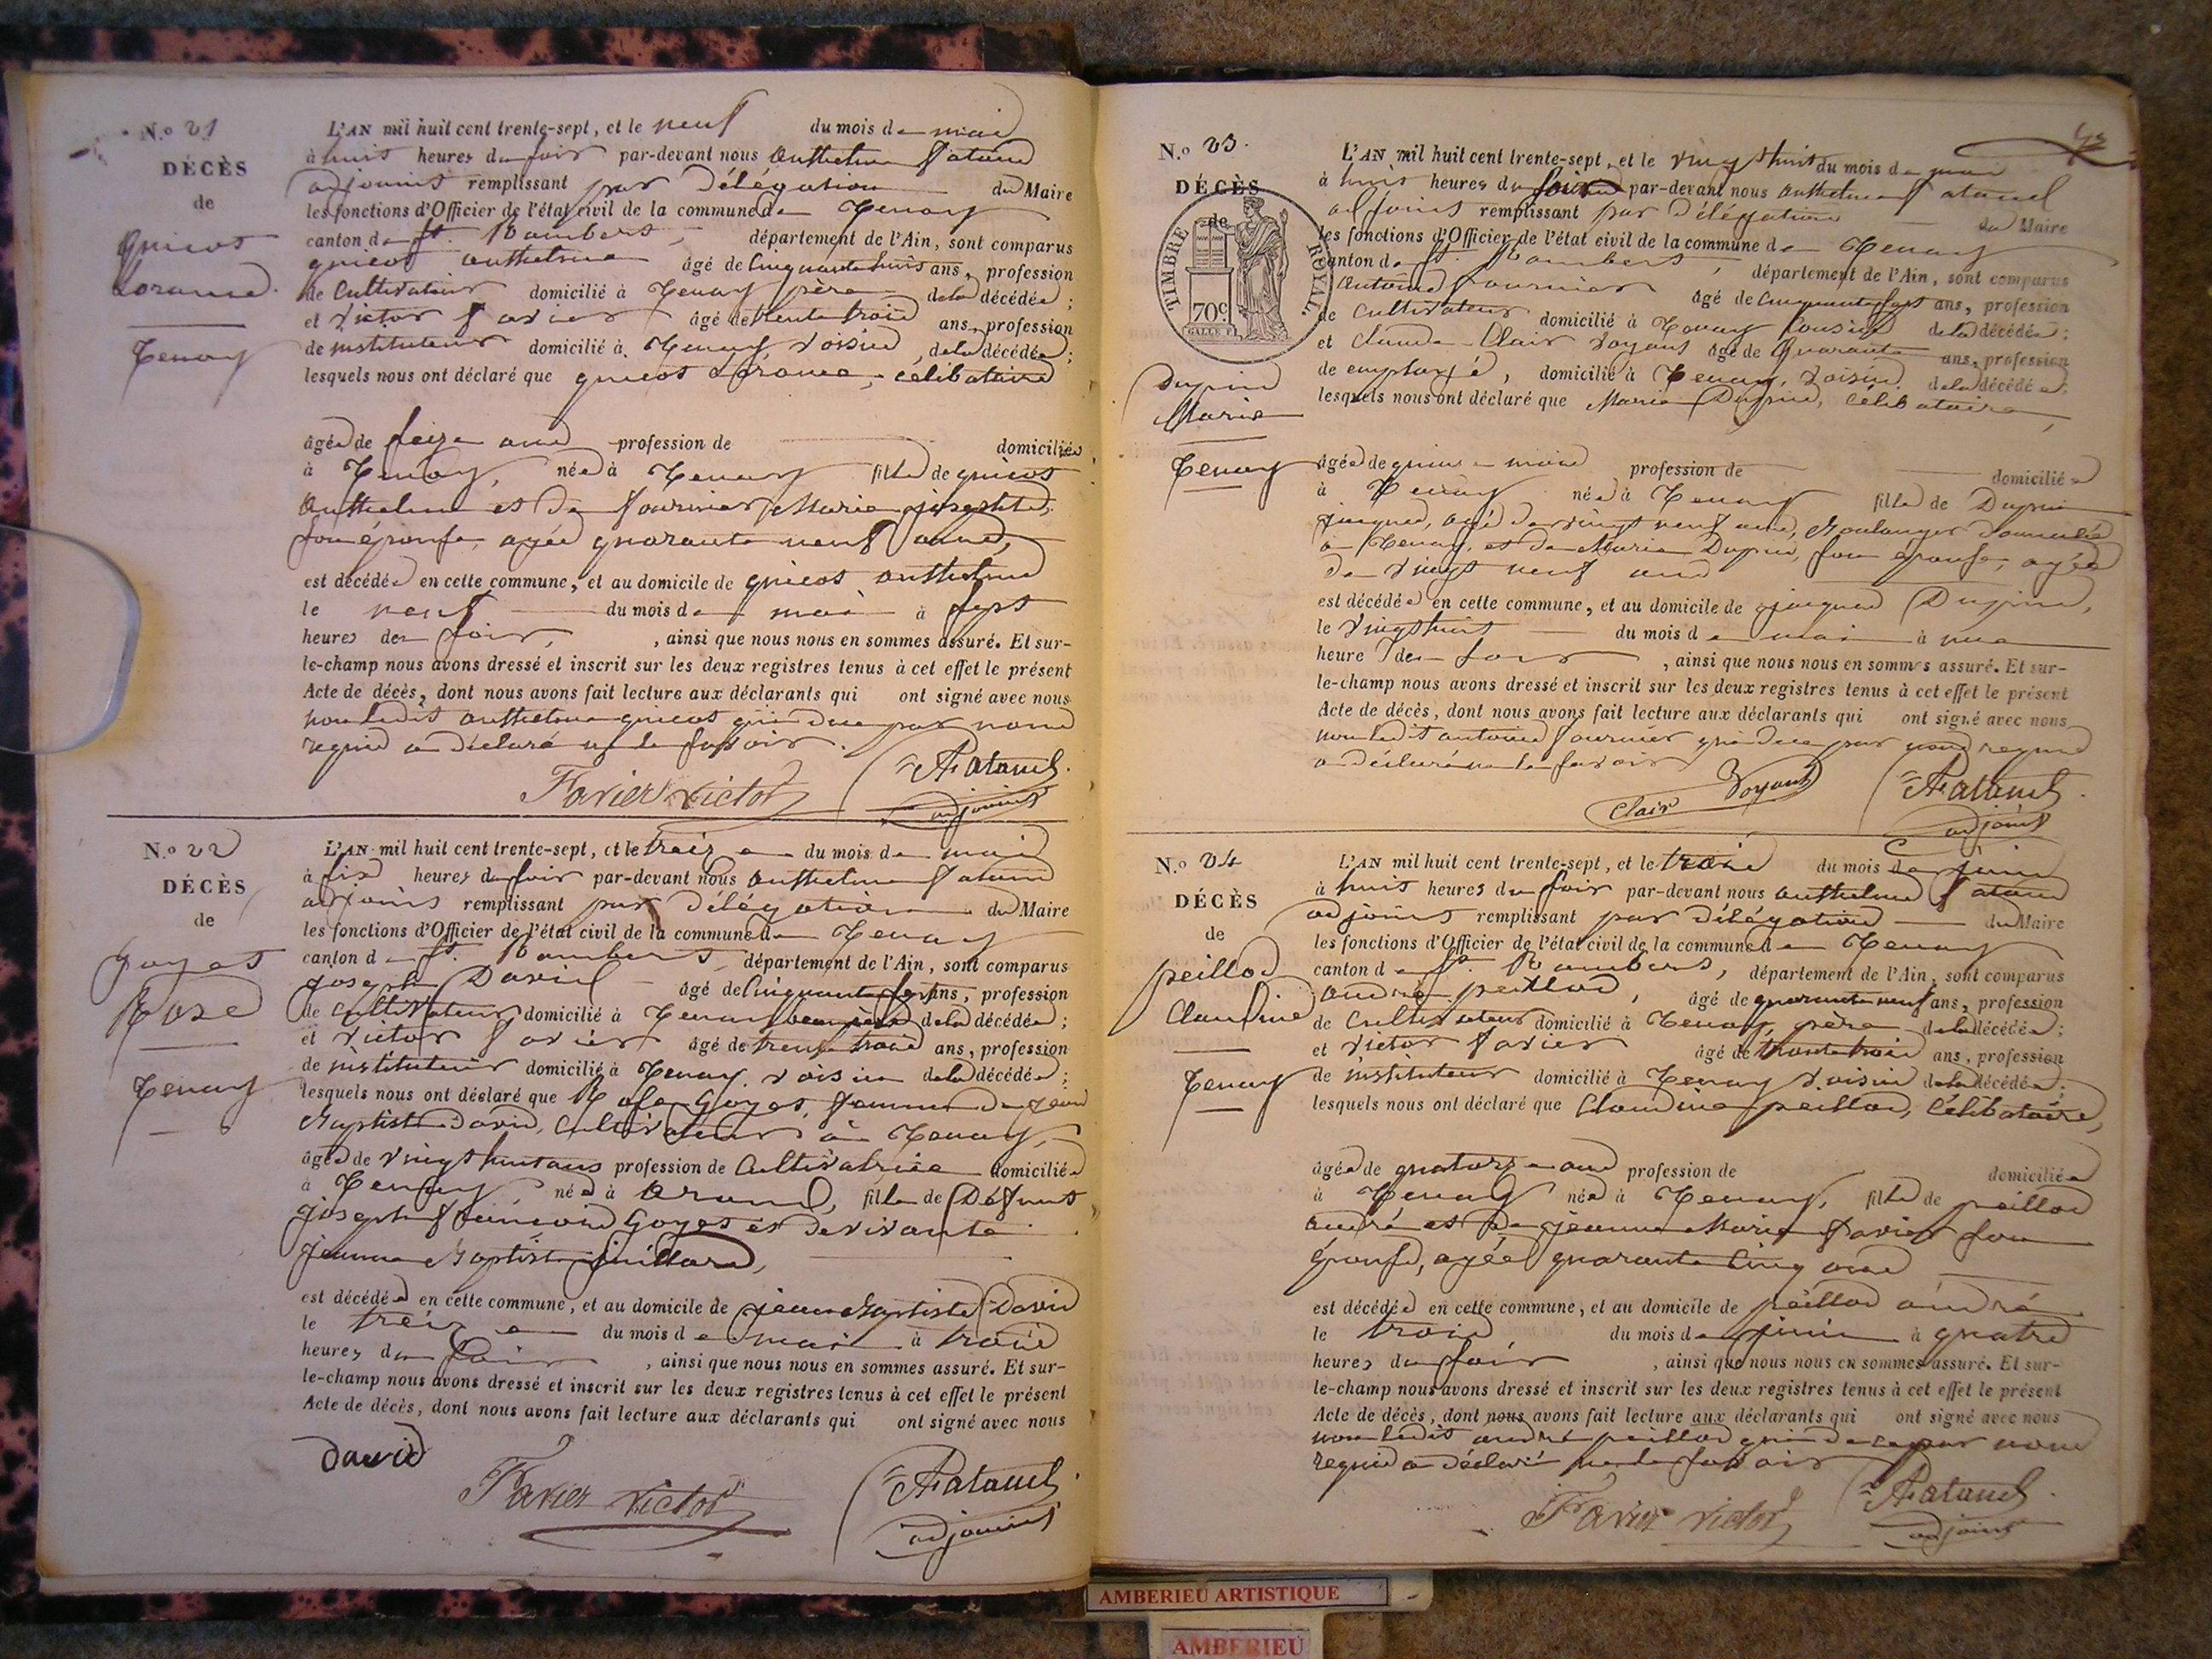 N.o 21
DÉCÈS
de
quicot
Lorance.
Tenay
L'AN mil huit cent trente-sept, et le neuf du mois de mai
à huit heures du soir par-devant nous anthelme
adjoint remplissant par délégation du Maire
les fonctions d'Officier de l'état civil de la commune de Tenay
canton de St. Rambert, département de l'Ain, sont comparus
quicot anthelme âgé de cinquante huit ans, profession
de cultivateur domicilié à Tenay père de la décédée ;
et Victor favier âgé de trente trois ans, profession
de instituteur domicilié à Tenay, voisin, de la décédée ;
lesquels nous ont déclaré que quicot Lorance, célibataire
âgée de seize ans profession de domiciliée
à Tenay, née à Tenay fille de quicot
anthelme et de fournier Marie josephte,
son épouse, agée quarante neuf ans,
est décédée en cette commune, et au domicile de quicot anthelme
le neuf du mois de mai à sept
heures de soir, , ainsi que nous nous en sommes assuré. Et sur-
le-champ nous avons dressé et inscrit sur les deux registres tenus à cet effet le présent
Acte de décès, dont nous avons fait lecture aux déclarants qui ont signé avec nous
non ledit anthelme quicot qui de ce par nous
requis a déclaré ne le savoir.
Favier victor
adjoint
N.o 22
DÉCÈS
de
goyet
Rose
Tenay
L'AN mil huit cent trente-sept, et le treize du mois de mai
à six heures du soir par-devant nous anthelme
adjoint remplissant par délégation du Maire
les fonctions d'Officier de l'état civil de la commune de Tenay
canton de St. Rambert département de l'Ain, sont comparus
joseph David âgé de cinquante sept ans, profession
de cultivateur domicilié à Tenay beau père de la décédée ;
et victor favier âgé de trente trois ans, profession
de instituteur domicilié à Tenay. voisin de la décédée ;
lesquels nous ont déclaré que Rose Goyet, femme de jean
Baptiste David, cultivateur à Tenay,
âgée de vingt huit ans profession de cultivatrice domiciliée
à Tenay, née à arand, fille de Défunt
joseph françois Goyet et de vivante
jeanne Baptiste juillard,
est décédée en cette commune, et au domicile de jean Baptiste David
le treize du mois de mai à trois
heures du soir , ainsi que nous nous en sommes assuré. Et sur-
le-champ nous avons dressé et inscrit sur les deux registres tenus à cet effet le présent
Acte de décès, dont nous avons fait lecture aux déclarants qui ont signé avec nous
david
Favier victor
adjoint
N.o 23.
DÉCÈS
de
TIMBRE ROYAL.
70c.
Dupin
Marie
Tenay
L'AN mil huit cent trente-sept, et le vingt huit du mois de mai
à huit heures du soir par-devant nous anthelme
adjoint remplissant par délégation du Maire
les fonctions d'Officier de l'état civil de la commune de Tenay
canton de St. Rambert, département de l'Ain, sont comparus
antoine fournier âgé de cinquante sept ans, profession
de cultivateur domicilié à Tenay cousin de la décédée ;
et claude Clair voyant âgé de quarante ans, profession
de employé, domicilié à Tenay, voisin. de la décédée
lesquels nous ont déclaré que Marie Dupin, célibataire,
âgée de quinze mois profession de domiciliée
à Tenay née à Tenay fille de Dupin
jacques, agé de vingt neuf ans, Boulanger domicilié
à Tenay, et de Marie Dupin, son épouse, agée
de vingt neuf ans
est décédée en cette commune, et au domicile de jacques Dupin,
le vingt huit du mois de mai à une
heure de soir , ainsi que nous nous en sommes assuré. Et sur-
le-champ nous avons dressé et inscrit sur les deux registres tenus à cet effet le présent
Acte de décès, dont nous avons fait lecture aux déclarants qui ont signé avec nous
non ledit antoine fournier qui de ce par nous requis
a déclaré ne le savoir
Clair Voyant
adjoint
N.o 24
DÉCÈS
de
peillod
Claudine
Tenay
L'AN mil huit cent trente-sept, et le trois du mois de juin
à huit heures du soir par-devant nous anthelme
adjoint remplissant par délégation du Maire
les fonctions d'Officier de l'état civil de la commune de Tenay
canton de St. Rambert, département de l'Ain, sont comparus
andré peillod, âgé de quarante neuf ans, profession
de cultivateur domicilié à Tenay, père de la décédée ;
et victor favier âgé de trente trois ans, profession
de instituteur domicilié à Tenay voisin de la décédée ;
lesquels nous ont déclaré que Claudine peillod, célibataire,
âgée de quatorze ans profession de domiciliée
à Tenay née à Tenay, fille de peillod
andré et de jeanne Marie favier son
épouse, agée quarante cinq ans
est décédée en cette commune, et au domicile de peillod andré
le trois du mois de juin à quatre
heures du soir , ainsi que nous nous en sommes assuré. Et sur-
le-champ nous avons dressé et inscrit sur les deux registres tenus à cet effet le présent
Acte de décès, dont nous avons fait lecture aux déclarants qui ont signé avec nous
non ledit andré peillod qui de ce par nous
requis a déclaré ne le savoir
Favier victor
adjoint
AMBERIEU ARTISTIQUE
AMBERIEU